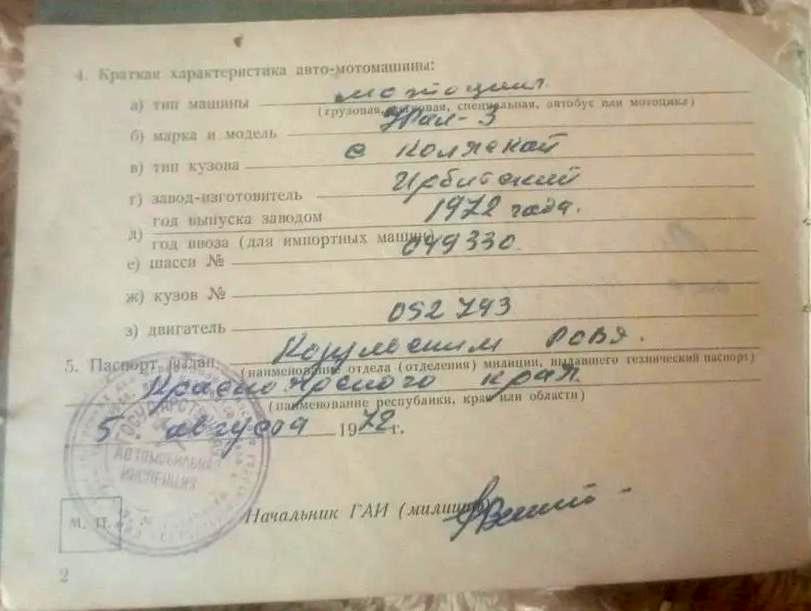 4. Краткая характеристика авто-мотомашины:
а) тип машины мотоцикл
(грузовая, легковая, специальная, автобус или мотоцикл)
б) марка и модель Урал-3
в) тип кузова с коляской
г) завод-изготовитель Ирбитский
год выпуска заводом 1972 года.
д)
год ввоза (для импортных машин)
е) шасси № 049330
ж) кузов №
з) двигатель 052793
5. Паспорт выдан
(наименование отдела (отделения) милиции, выдавшего технический паспорт)
Красноярского края
(наименование республики, края или области)
5 августа 1972 г.
ГОСУДАРСТВЕННАЯ
АВТОМОБИЛЬНАЯ
ИНСПЕКЦИЯ
М. П.
Начальник ГАИ (милиции)
2